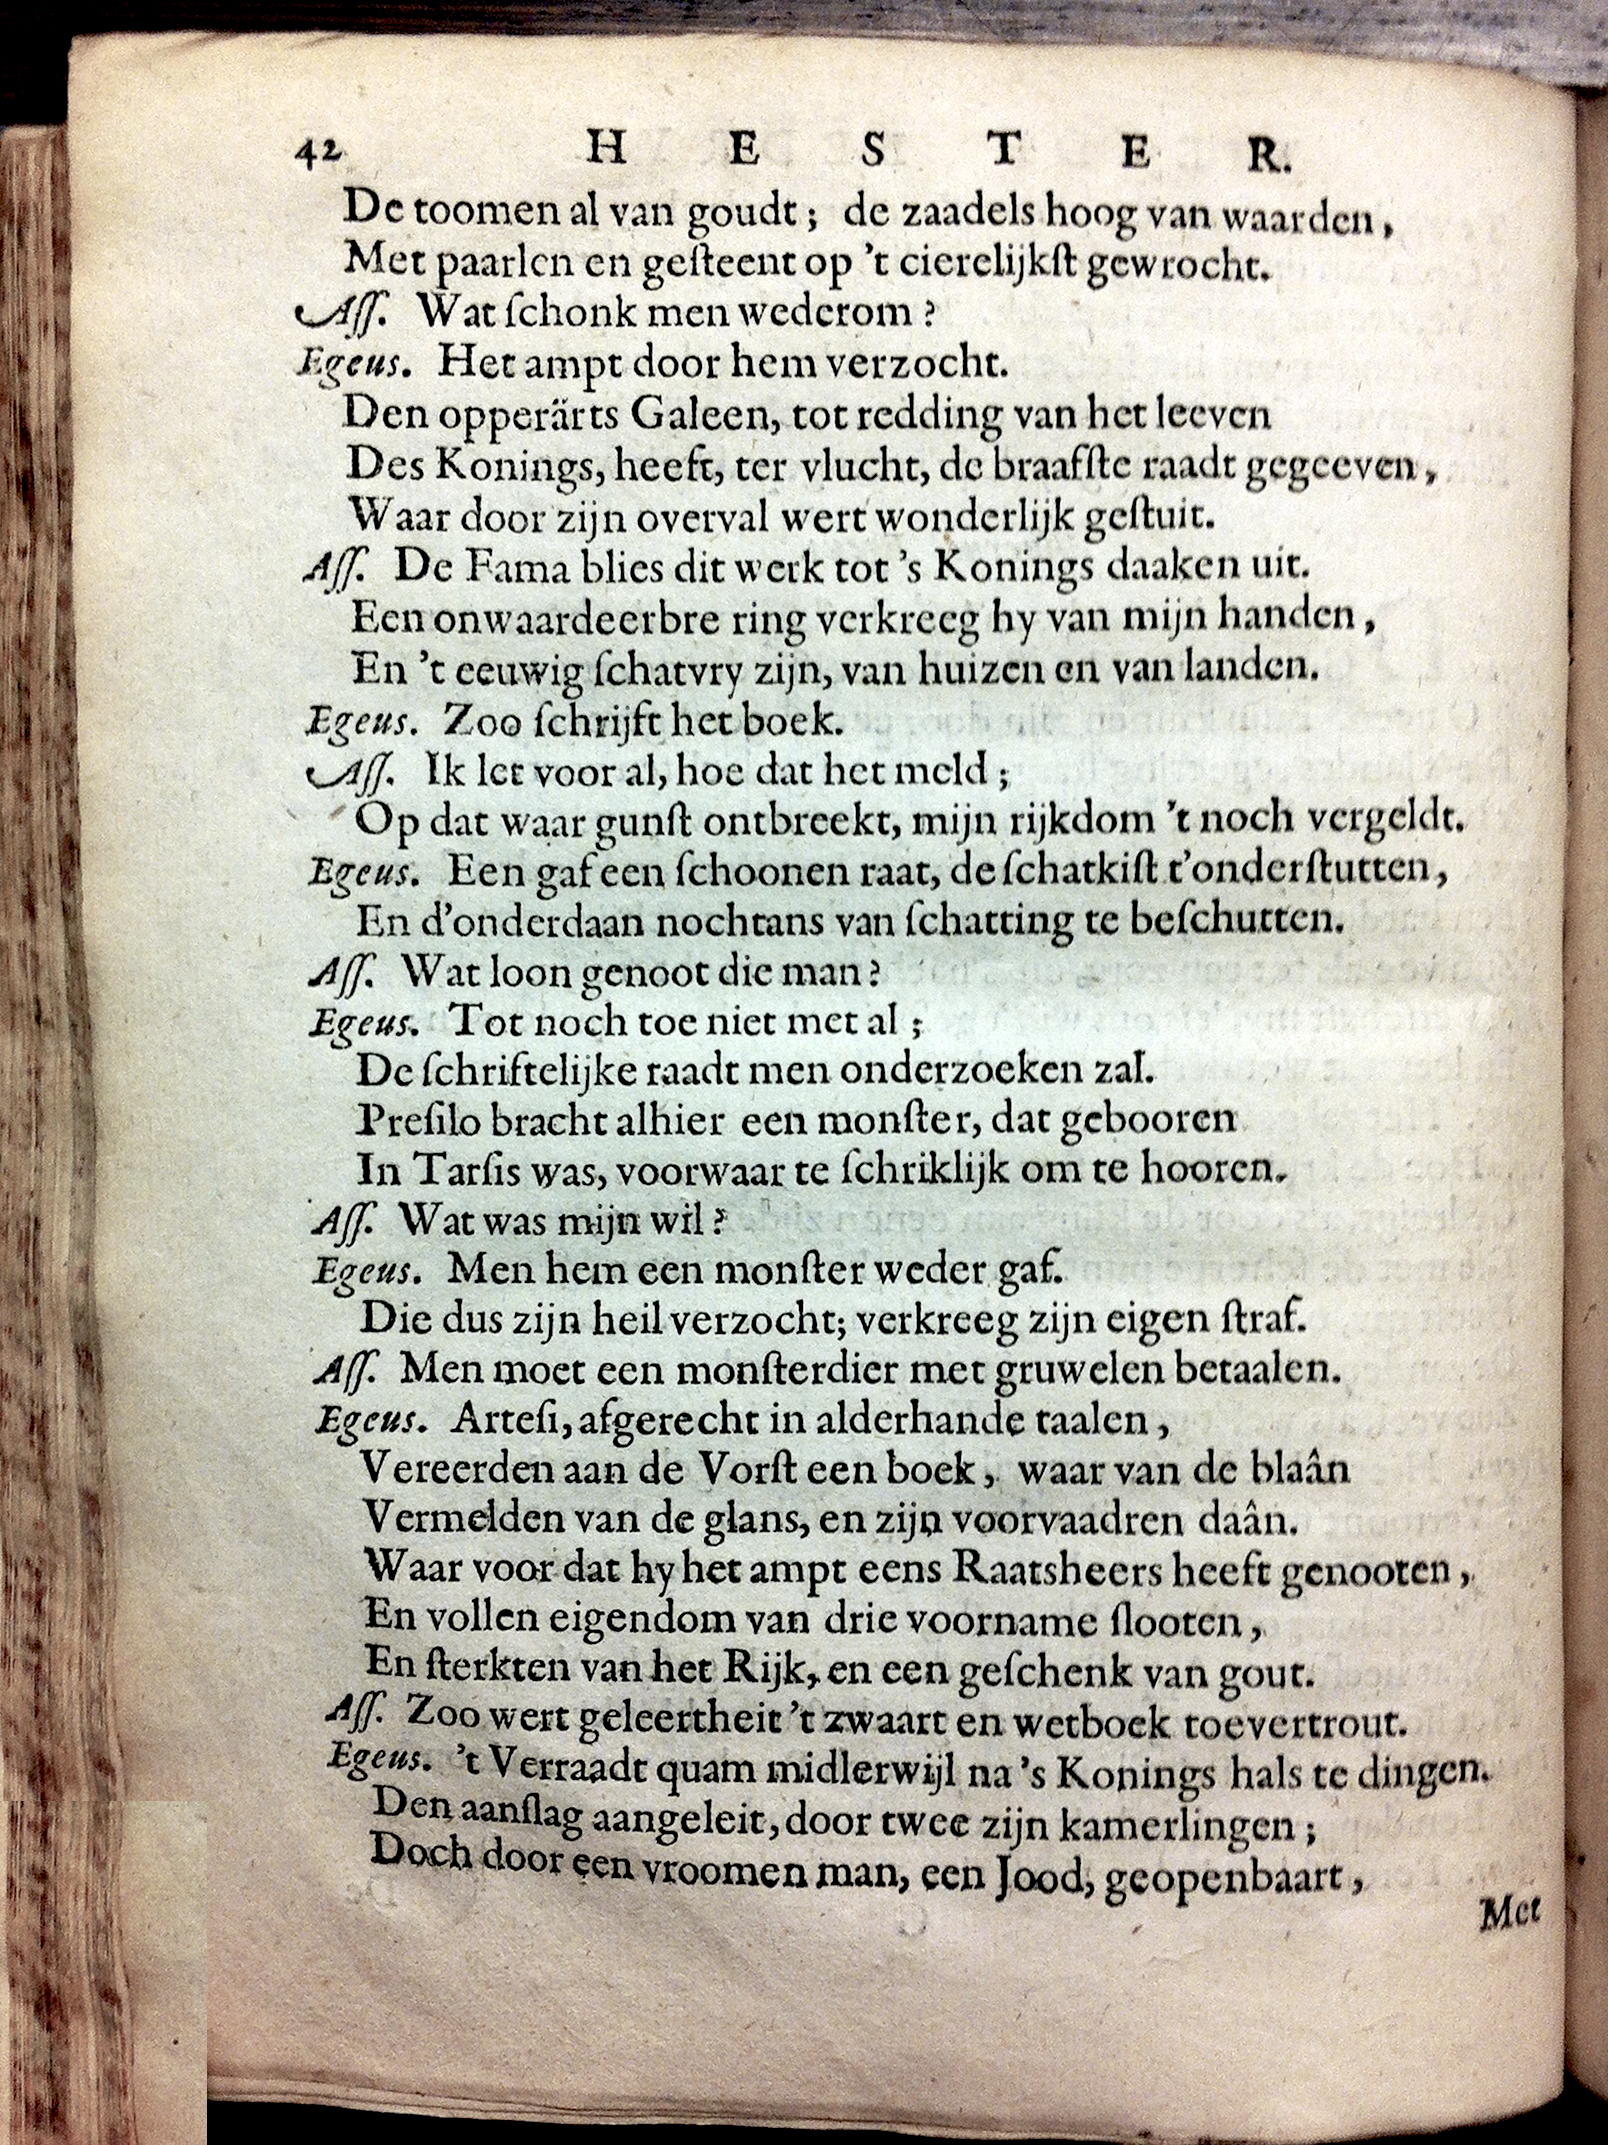 42 H E S T E R.
De toomen al van goudt; de zaadels hoog van waarden,
Met paarlen en geſteent op 't cierelijkſt gewrocht.
Aſſ. Wat ſchonk men wederom?
Egeus. Het ampt door hem verzocht.
Den opperärts Galeen, tot redding van het leeven
Des Konings, heeft, ter vlucht, de braafſte raadt gegeeven,
Waar door zijn overval wert wonderlijk geſtuit.
Aſſ. De Fama blies dit werk tot 's Konings daaken uit.
Een onwaardeerbre ring verkreeg hy van mijn handen,
En 't eeuwig ſchatvry zijn, van huizen en van landen.
Egeus. Zoo ſchrijft het boek.
Aſſ. Ik let voor al, hoe dat het meld;
Op dat waar gunſt ontbreekt, mijn rijkdom 't noch vergeldt.
Egeus. Een gaf een ſchoonen raat, de ſchatkiſt t'onderſtutten,
En d'onderdaan nochtans van ſchatting te beſchutten.
Aſſ. Wat loon genoot die man?
Egeus. Tot noch toe niet met al;
De ſchriftelijke raadt men onderzoeken zal.
Preſilo bracht alhier een monſter, dat gebooren
In Tarſis was, voorwaar te ſchriklijk om te hooren.
Aſſ. Wat was mijn wil?
Egeus. Men hem een monſter weder gaf.
Die dus zijn heil verzocht; verkreeg zijn eigen ſtraf.
Aſſ. Men moet een monſterdier met gruwelen betaalen.
Egeus. Arteſi, afgerecht in alderhande taalen,
Vereerden aan de Vorſt een boek, waar van de blaân
Vermelden van de glans, en zijn voorvaadren daân.
Waar voor dat hy het ampt eens Raatsheers heeft genooten,
En vollen eigendom van drie voorname ſlooten,
En ſterkten van het Rijk, en een geſchenk van gout.
Aſſ. Zoo wert geleertheit 't zwaart en wetboek toevertrout.
Egeus. 't Verraadt quam midlerwijl na 's Konings hals te dingen.
Den aanſlag aangeleit, door twee zijn kamerlingen;
Doch door een vroomen man, een Jood, geopenbaart,
Met